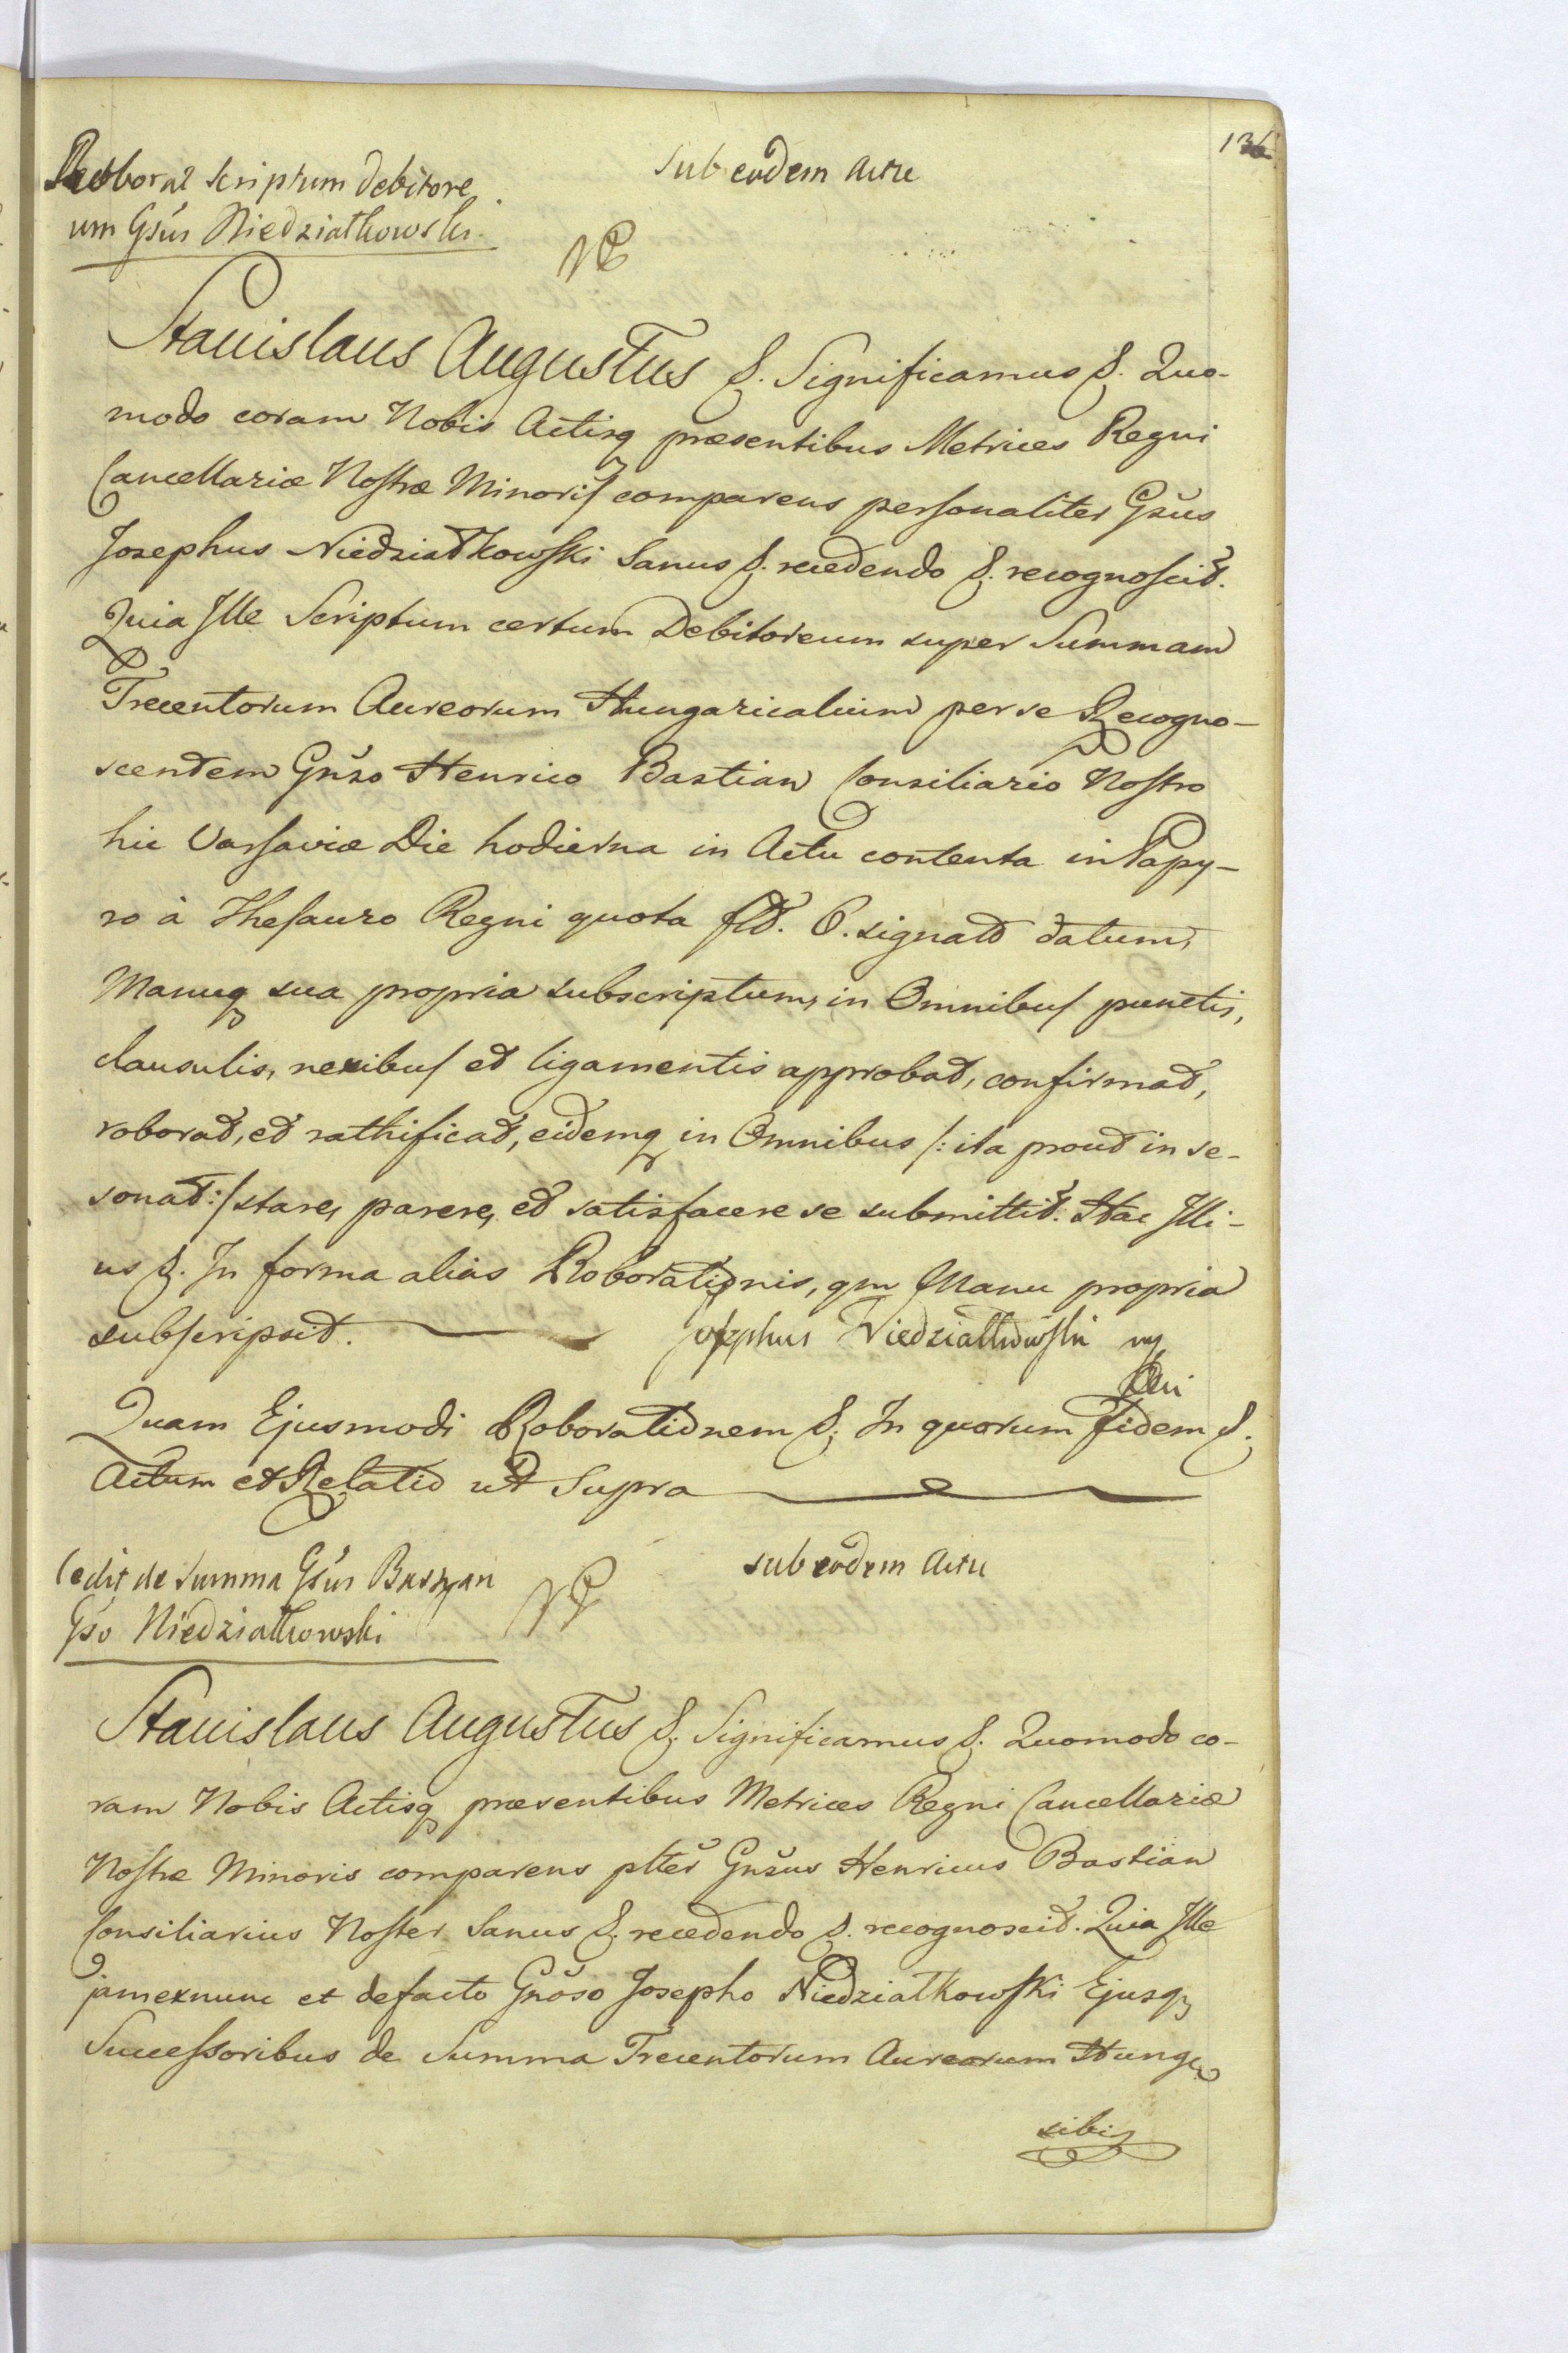 136
Roborat scriptum debitore
um Gsus Niedziałkowski
sub eodem actu
Stanislaus Augustus &. Significamus &. Quo-
modo coram Nobis Actisq præsentibus Metrices Regni
Cancellariæ Nostræ Minoris comparens personaliter Gsus
Josephus Niedziałkowski Sanus &. recedendo &. recognoscit.
Quia Ille Scriptum certum Debitoreum super Summam
Trecentorum Aureorum Hungaricalium per se Recogno-
scentem Gnso Henrico Bastian Consiliario Nostro
hic Varsaviæ Die hodierna in Actu contenta in Papy-
ro à Thesauro Regni quota fld. 6. signato datum,
Manuq sua propria subscriptum, in Omnibus punctis,
clausulis, nexibus et ligamentis approbat, confirmat,
roborat, et rathificat, eidemq in Omnibus /: ita prout in se-
sonat :/ stare, parere, et satisfacere se submittit. Hac Illi-
us &. In forma alias Roborationis, qm Manu propria
subscripsit. Josephus Niedziałkowski mp
Quam Ejusmodi Roborationem &. In quorum Fidem &.
Actum et Relatio ut Supra
Cedit de summa Gsus Bastyan
Gso Niedziałkowski
sub eodem Actu
Stanislaus Augustus &. Significamus &. Quomodo co-
ram Nobis Actisq præsentibus Metrices Regni Cancellariæ
Nostræ Minoris comparens plter Gnsus Henricus Bastian
Consiliarius Noster Sanus &. recedendo &. recognoscit. Quia Ille
jam ex nunc et de facto Gnoso Josepho Niedziałkowski Ejusq
Successoribus de Summa Trecentorum Aureorum Hung
sibi